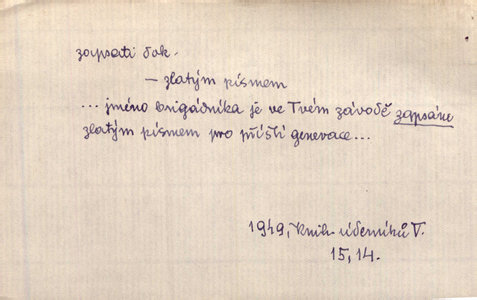 zapsati dok.
— zlatým písmem
... jméno brigádníka je ve Tvém závodě zapsáno
zlatým písmem pro příští generace...
1949, Knih. úderníků V.
15, 14.